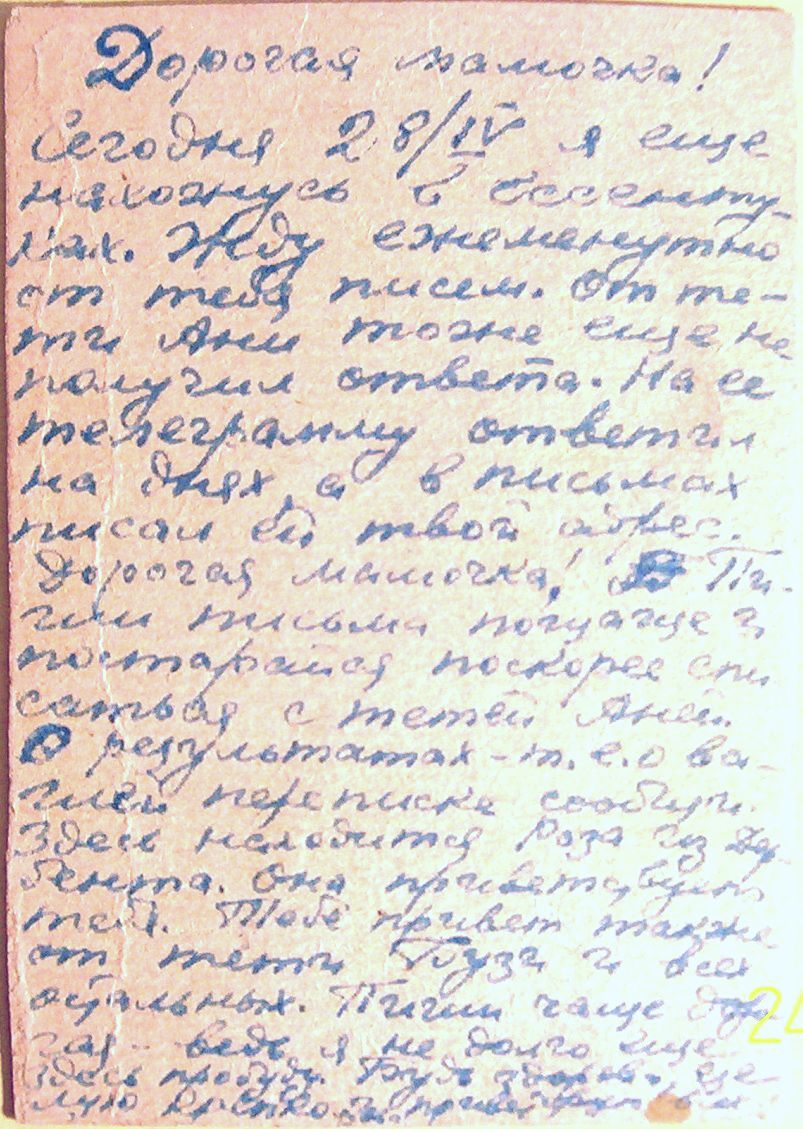 Дорогая мамочка!
Сегодня 28/IV я еще
нахожусь в Ессенту-
ках. Жду ежеменутно
от тебя писем. От те-
ти Ани тоже еще не
получил ответа. На ее
телеграмму ответил
на днях, а в письмах
писал ей твой адрес.
Дорогая мамочка! Пи-
ши письма почаще и
постарайся поскорее спи
саться с тетей Аней.
О результатах - т.е. о ва-
шей переписке сообщи.
Здесь находится Роза из Дер-
бента. Она приветствует
тебя. Тебе привет также
от тети Бузи и всех
остальных. Пиши чаще доро-
гая - ведь я не долго еще
здесь пробуду. Будь здорова, це-
лую крепко
24